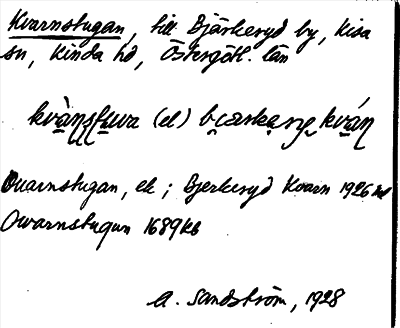 Kvarnstugan, till Bjärkeryd by, Kisa
sn, Kinda hd, Östergötl. län
(el)
Qvarnstugan, ek; Bjerkeryd Kvarn 1926
Qwarnstugun 1689 kb
A. Sandström, 1928